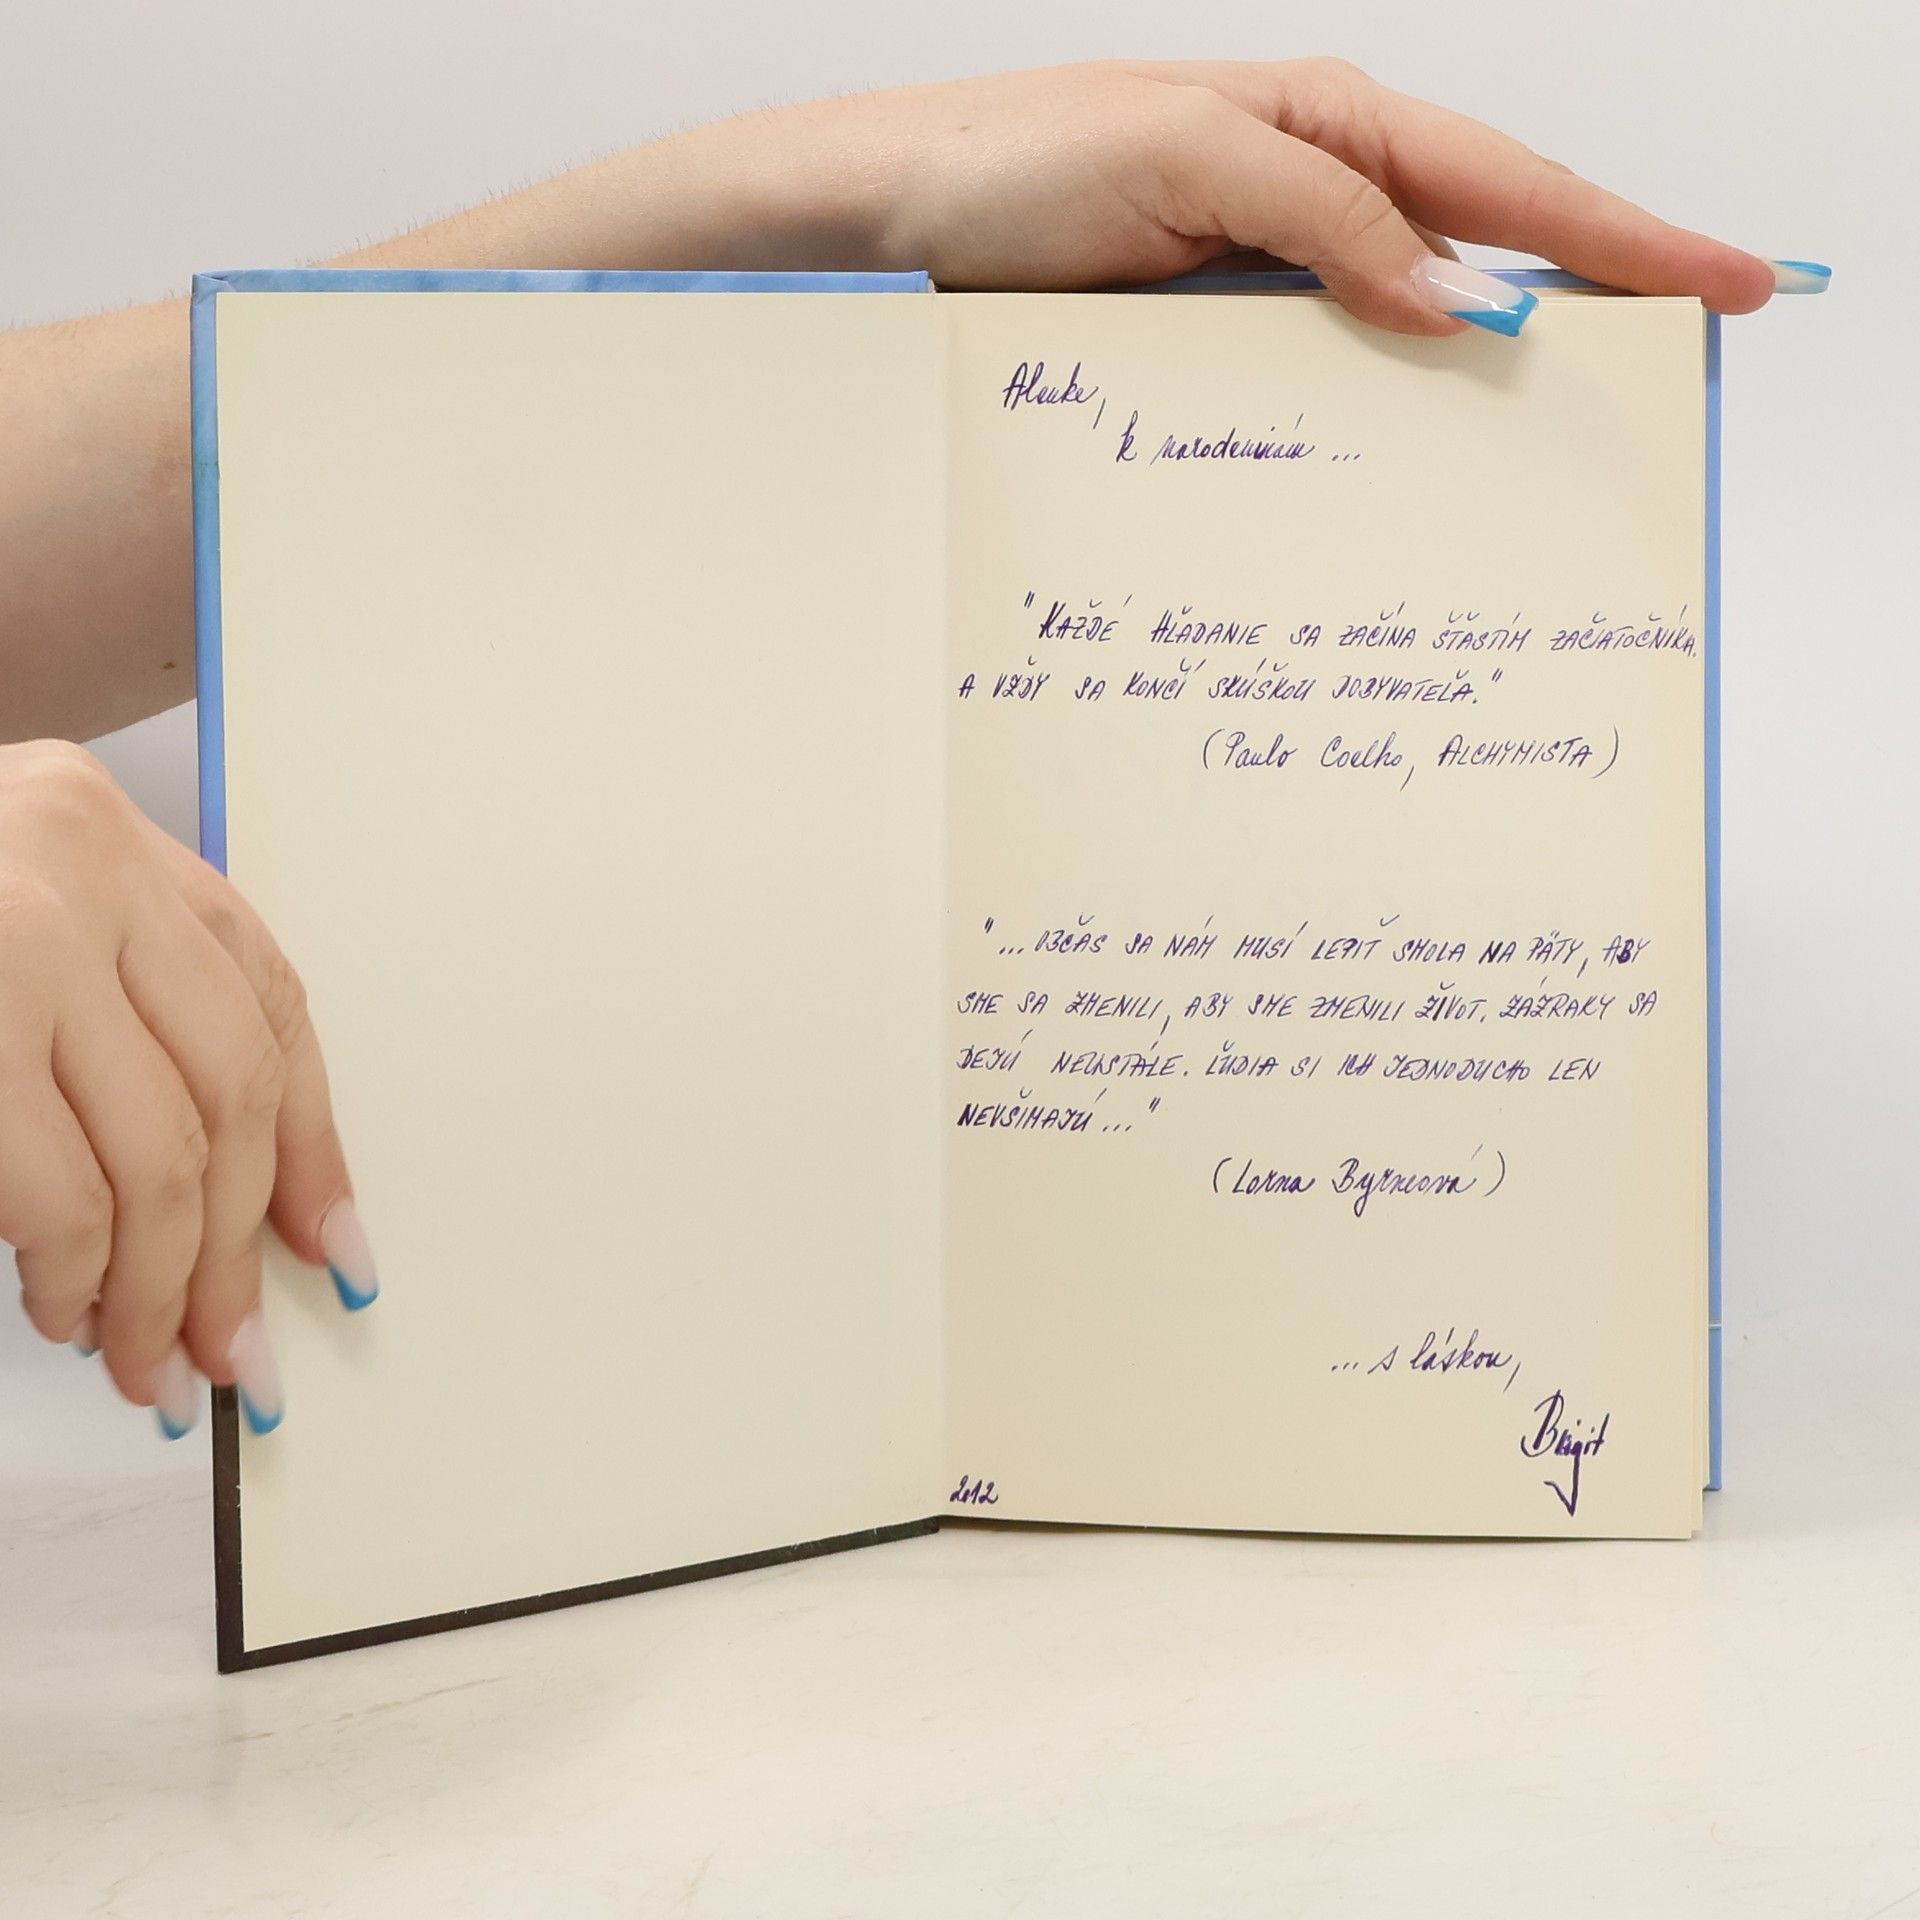 Alenke,
k narodeninám ...
"KAŽDÉ HĽADANIE SA ZAČÍNA ŠŤASTÍM ZAČIATOČNÍKA.
A VŽDY SA KONČÍ SKÚŠKOU DOBYVATEĽA."
(Paulo Coelho, ALCHYMISTA)
"...OBČAS SA NÁM MUSÍ LEPIŤ SMOLA NA PÄTY, ABY
SME SA ZMENILI, ABY SME ZMENILI ŽIVOT. ZÁZRAKY SA
DEJÚ NEUSTÁLE. ĽUDIA SI ICH JEDNODUCHO LEN
NEVŠÍMAJÚ..."
(Lorna Byrneová)
... s láskou,
Birgit
2012